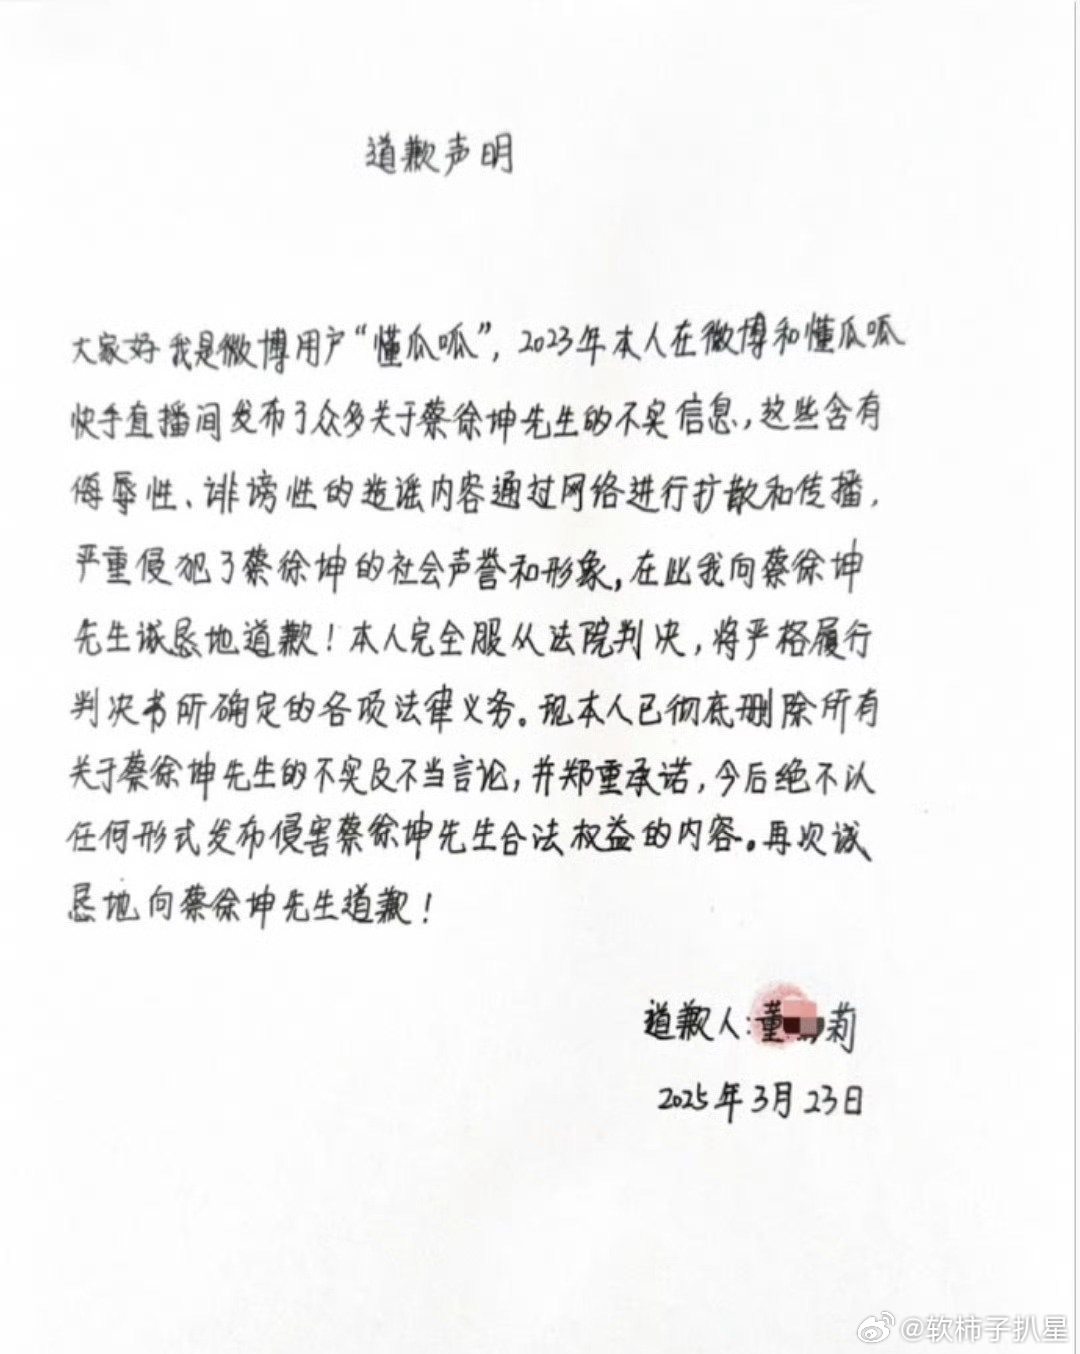 道歉声明
大家好我是微博用户“懂瓜呱”，2023年本人在微博和懂瓜呱
快手直播间发布了众多关于蔡徐坤先生的不实信息，这些含有
侮辱性、诽谤性的造谣内容通过网络进行扩散和传播，
严重侵犯了蔡徐坤的社会声誉和形象，在此我向蔡徐坤
先生诚恳地道歉！本人完全服从法院判决，将严格履行
判决书所确定的各项法律义务。现本人已彻底删除所有
关于蔡徐坤先生的不实及不当言论，并郑重承诺，今后绝不以
任何形式发布侵害蔡徐坤先生合法权益的内容。再次诚
恳地向蔡徐坤先生道歉！
道歉人：董 莉
2025年3月23日
@软柿子扒星